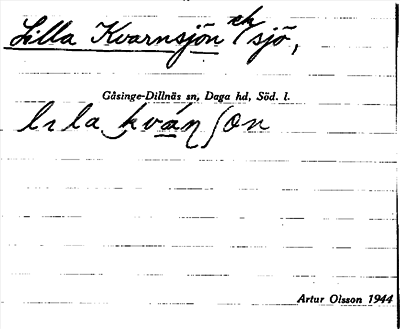 Lilla Kvarnsjön ek/sjö,
Gåsinge-Dillnäs sn, Daga hd, Söd. l.
lɩla kván ʃön
Artur Olsson 1944